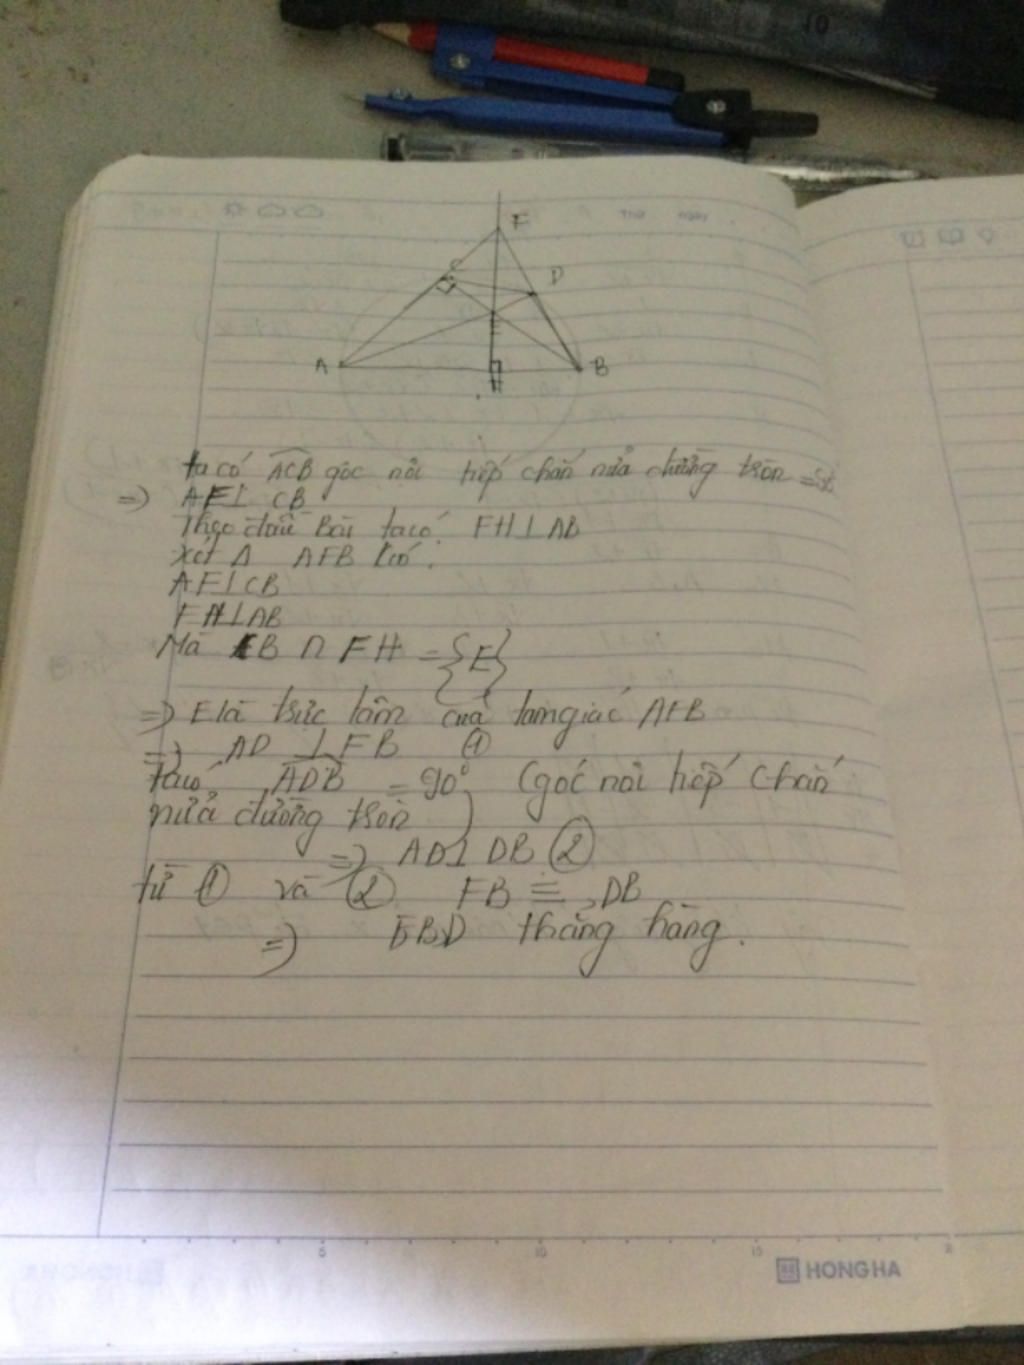 10
Thứ ngày
F
C
D
E
A
B
H
ta có ACB góc nội tiếp chắn nửa đường tròn
=> AF⊥ CB
Theo đầu Bài ta có. FH⊥AB
Xét Δ AFB Có.
AF⊥CB
FH⊥AB
Mà CB ∩ FH = {E}
=> E là trực tâm của tam giác AFB
=> AD ⊥ FB ①
ta có ADB = 90° (góc nội tiếp chắn
nửa đường tròn)
=> AD⊥ DB ②
từ ① và ② FB ≡ DB
=> FBD thẳng hàng.
5 10 15
HONG HA